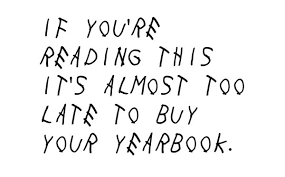 IF YOU'RE
READING THIS
IT'S ALMOST TOO
LATE TO BUY
YOUR YEARBOOK.